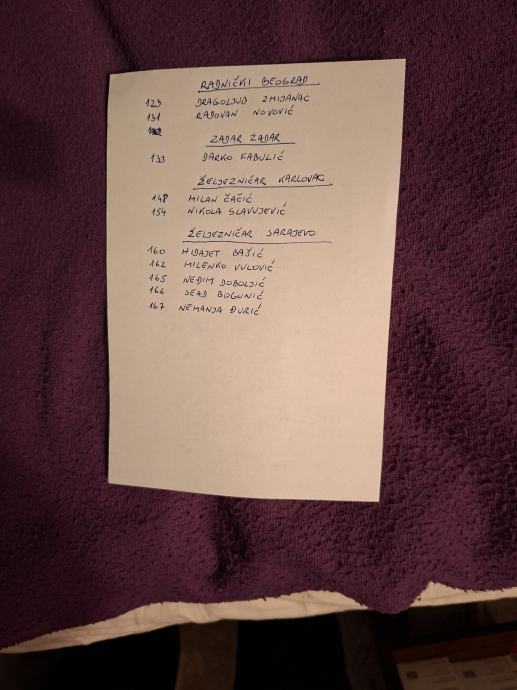 RADNIČKI BEOGRAD
123 DRAGOLJUB ZMIJANAC
131 RADOVAN NOVOVIĆ
ZADAR ZADAR
133 DARKO FABULIĆ
ŽELJEZNIČAR KARLOVAC
148 MILAN ČAČIĆ
154 NIKOLA SLAVUJEVIĆ
ŽELJEZNIČAR SARAJEVO
160 HIDAJET BAŠIĆ
162 MILENKO VULOVIĆ
165 NEDIM DOBOLJIĆ
166 SEAD BOGUNIĆ
167 NEMANJA ĐURIĆ